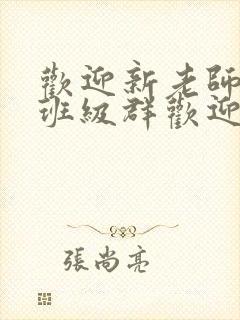 歡迎新老師
班級群歡迎
張尚亮